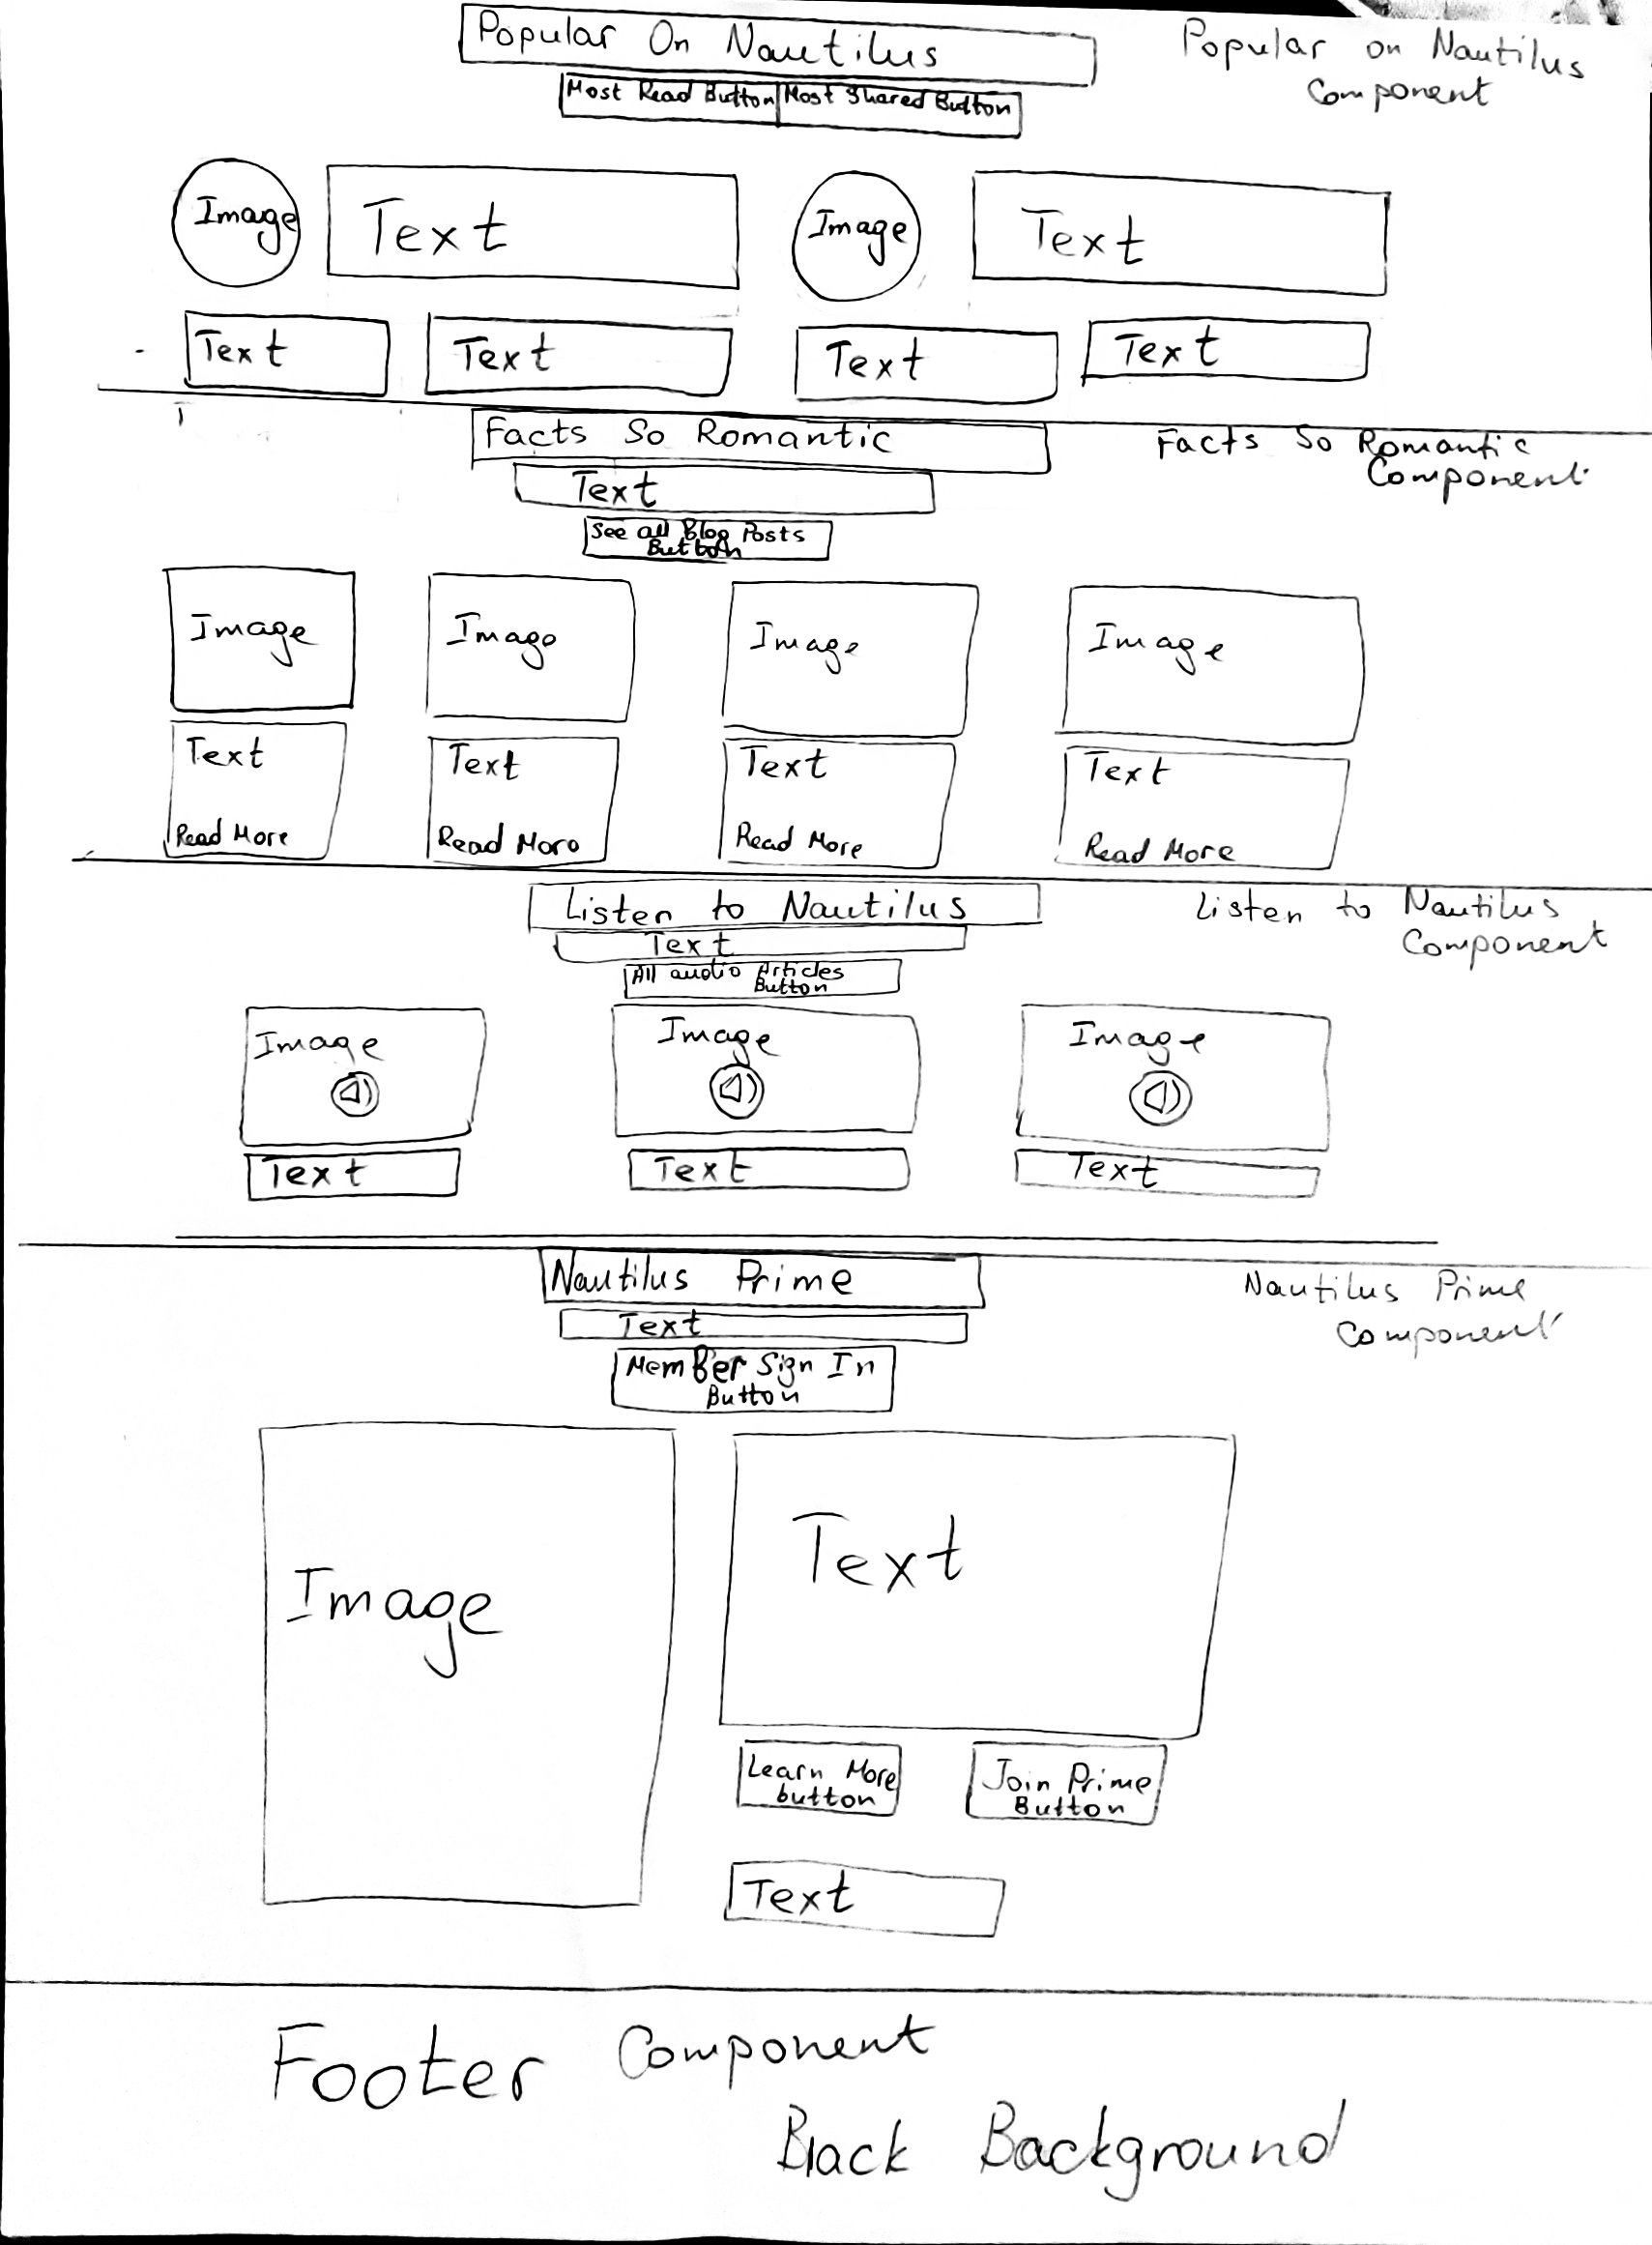 Popular On Nautilus
Popular on Nautilus
Component
Most Read Button Most Shared Button
Image Text Image Text
Text Text Text Text
Facts So Romantic
Facts So Romantic
Component
Text
See all Blog Posts
Button
Image Image Image Image
Text Text Text Text
Read More Read More Read More Read More
Listen to Nautilus
Listen to Nautilus
Component
Text
All audio Articles
Button
Image Image Image
Text Text Text
Nautilus Prime
Nautilus Prime
Component
Text
Member Sign In
Button
Image
Text
Learn More
button
Join Prime
Button
Text
Footer Component
Black Background